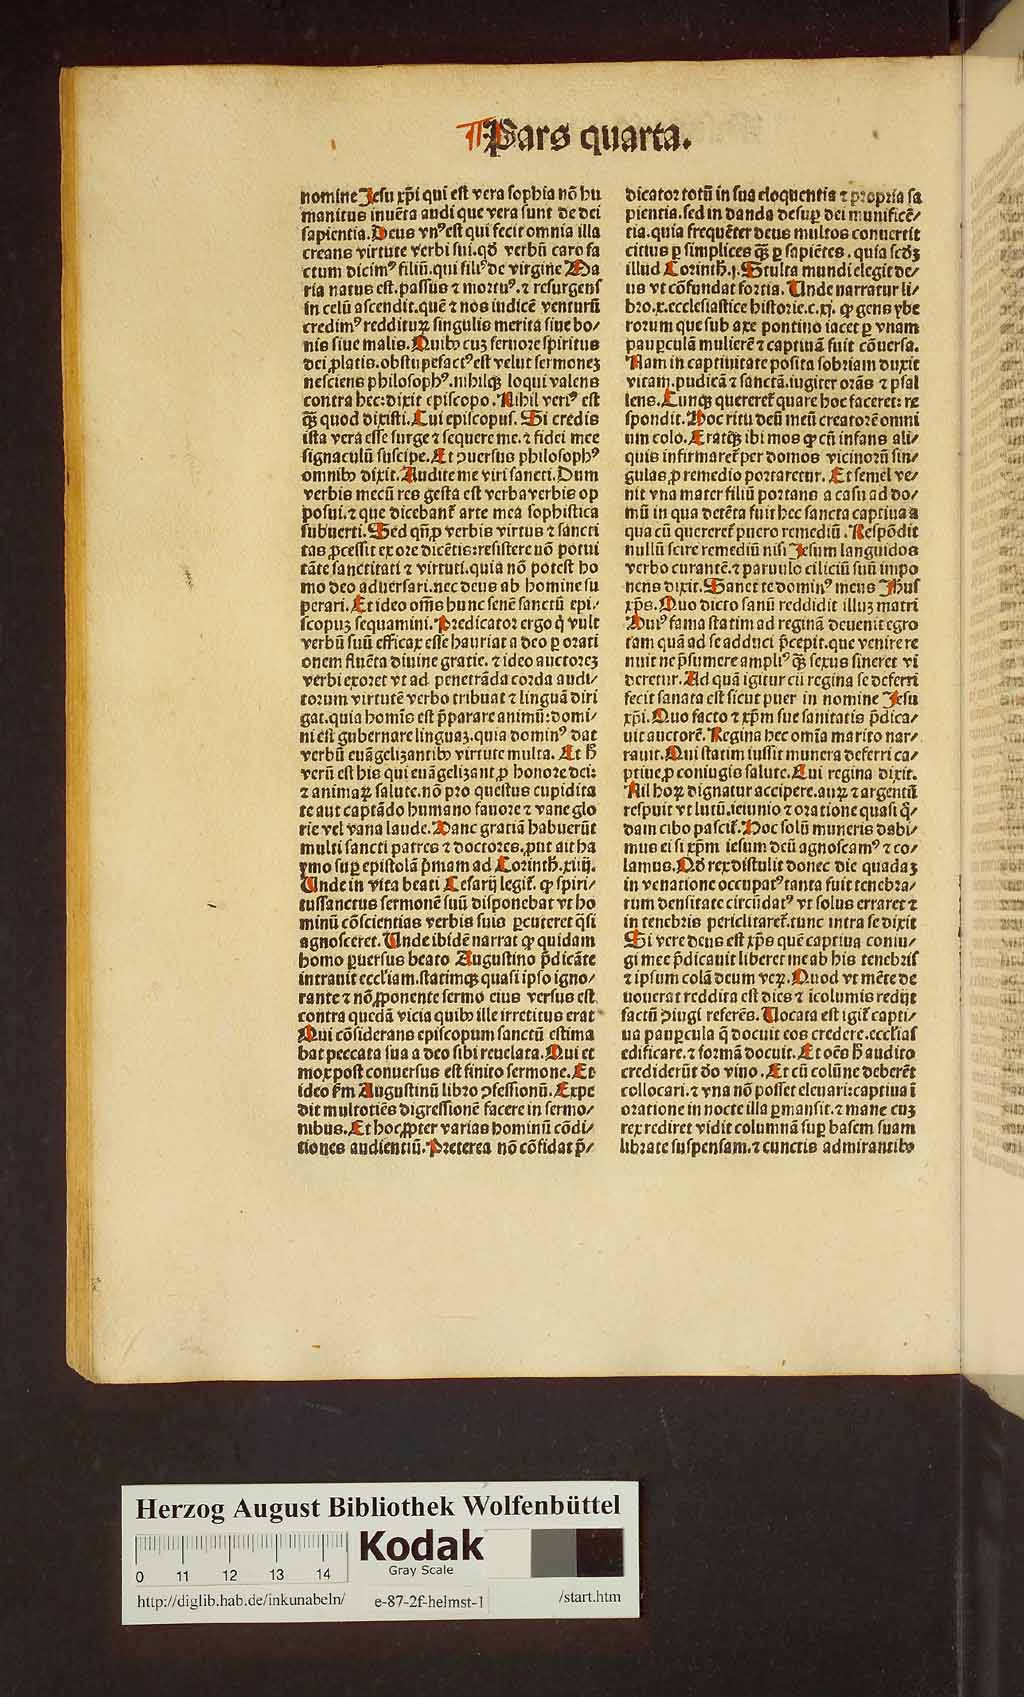 Pars quarta.
nomine Jesu xp̄i qui est vera sophia nō hu
manitus inuēta audi que vera sunt de dei
sapientia. Deus vnꝰ est qui fecit omnia illa
creans virtute verbi sui. qđ verbū caro fa
ctum dicimꝰ filiū. qui filiꝰ de virgine Ma
ria natus est. passus ⁊ mortuꝰ. ⁊ resurgens
in celū ascendit. quē ⁊ nos iudicē venturū
credimꝰ redditurꝝ singulis merita siue bo/
nis siue malis. Quibꝰ cuꝫ feruore spiritus
dei ꝓlatis. obstupefactꝰ est velut sermoneꝫ
nesciens philosophꝰ. nihilqꝫ loqui valens
contra hec: dixit episcopo. Nihil veriꝰ est
qꝫ̄ quod dixisti. Cui episcopus. Si credis
ista vera esse surge ⁊ sequere me. ⁊ fidei mee
signaculū suscipe. Et ꝯuersus philosophꝰ
omnibꝰ dixit. Audite me viri sancti. Dum
verbis mecū res gesta est verba verbis op
posui. ⁊ que dicebant̄ arte mea sophistica
subuerti. Sed qn̄ ꝓ verbis virtus ⁊ sancti
tas ꝓcessit ex ore dicētis: resistere nō potui
tāte sanctitati ⁊ virtuti. quia nō potest ho
mo deo aduersari. nec deus ab homine su
perari. Et ideo om̄s hunc senē sanctū epi/
scopuꝫ sequamini. Predicator ergo q̇ vult
verbū suū efficax esse hauriat a deo ꝑ orati
onem fluēta diuine gratie. ⁊ ideo auctoreꝫ
verbi exoret vt ad penetrāda corda audi/
torum virtutē verbo tribuat ⁊ linguā diri
gat. quia homīs est p̄parare animū: domi/
ni est gubernare linguaꝫ. quia dominꝰ dat
verbū euāgelizantibꝰ virtute multa. Et ħ
verū est his qui euāgelizant ꝓ honore dei:
⁊ animaꝝ salute. nō pro questus cupidita
te aut captādo humano fauore ⁊ vane glo
rie vel vana laude. Hanc gratiā habuerūt
multi sancti patres ⁊ doctores. ꝓut ait ha
ymo suꝑ epistolā p̄mam ad Corinth̄. xiiij.
Unde in vita beati Cesarij legit̄. ꝙ spiri/
tussanctus sermonē suū disponebat vt ho
minū cōscientias verbis suis ꝑcuteret q̄si
agnosceret. Unde ibidē narrat ꝙ quidam
homo ꝑuersus beato Augustino p̄dicāte
intrauit eccl'iam. statimqꝫ quasi ipso igno/
rante ⁊ nō ꝓponente sermo eius versus est
contra quedā vicia quibꝰ ille irretitus erat
Qui cōsiderans episcopum sanctū estima
bat peccata sua a deo sibi reuelata. Qui et
mox post conuersus est finito sermone. Et
ideo fm̄ Augustinū libro ꝯfessionū. Expe
dit multotiēs digressionē facere in sermo/
nibus. Et hoc ꝓpter varias hominū cōdi/
tiones audientiū. Preterea nō cōfidat p̄/
dicator totū in sua eloquentia ⁊ propria sa
pientia. sed in danda desuꝑ dei munificē/
tia. quia frequēter deus multos conuertit
citius ꝑ simplices qꝫ̄ ꝑ sapiētes. quia scđꝫ
illud Corinth̄. j. Stulta mundi elegit de/
us vt cōfundat fortia. Unde narratur li/
bro. x. ecclesiastice historie. c. xj. ꝙ gens ybe
rorum que sub axe pontino iacet ꝑ vnam
pauꝑculā mulierē ⁊ captiuā fuit cōuersa.
Nam in captiuitate posita sobriam duxit
vitam. pudicā ⁊ sanctā. iugiter orās ⁊ psal
lens. Cunqꝫ quereret̄ quare hoc faceret: re
spondit. Hoc ritu deū meū creatorē omni
um colo. Eratqꝫ ibi mos ꝙ cū infans ali/
quis infirmaret̄ per domos vicinorū sin/
gulas ꝓ remedio portaretur. Et semel ve/
nit vna mater filiū portans a casu ad do/
mū in qua detēta fuit hec sancta captiua a
qua cū quereret̄ puero remediū. Respōdit
nullū scire remediū nisi Jesum languidos
verbo curantē. ⁊ paruulo ciliciū suū impo
nens dixit. Sanet te dominꝰ meus Jhus
xp̄s. Quo dicto sanū reddidit illuꝫ matri
Huiꝰ fama statim ad reginā deuenit egro
tam quā ad se adduci p̄cepit. que venire re
nuit ne p̄sumere ampliꝰ qꝫ̄ sexus sineret vi
deretur. Ad quā igitur cū regina se deferri
fecit sanata est sicut puer in nomine Jesu
xp̄i. Quo facto ⁊ xp̄m sue sanitatis p̄dica/
uit auctorē. Regina hec om̄ia marito nar/
rauit. Qui statim iussit munera deferri ca/
ptiue ꝓ coniugis salute. Cui regina dixit.
Nil hoꝝ dignatur accipere. auꝝ ⁊ argentū
respuit vt lutū. ieiunio ⁊ oratione quasi q̄/
dam cibo pascit̄. Hoc solū muneris dabi/
mus ei si xp̄m iesum deū agnoscamꝰ ⁊ co/
lamus. Qđ rex distulit donec die quadaꝫ
in venatione occupatꝰ tanta fuit tenebra/
rum densitate circūdatꝰ vt solus erraret ⁊
in tenebris periclitaret̄. tunc intra se dixit
Si vere deus est xp̄s quē captiua coniu/
gi mee p̄dicauit liberet me ab his tenebris
⁊ ipsum colā deum veꝝ. Quod vt mēte de
uouerat reddita est dies ⁊ īcolumis redijt
factū ꝯiugi referēs. Uocata est igit̄ capti/
ua pauꝑcula q̄ docuit eos credere. eccl'ias
edificare. ⁊ formā docuit. Et oēs ħ audito
crediderūt dō vino. Et cū colūne deberēt
collocari. ⁊ vna nō posset eleuari: captiua ī
oratione in nocte illa ꝑmansit. ⁊ mane cuꝫ
rex rediret vidit columnā suꝑ basem suam
librate suspensam. ⁊ cunctis admirantibꝰ
Herzog August Bibliothek Wolfenbüttel
0 11 12 13 14
Kodak
Gray Scale
http://diglib.hab.de/inkunabeln/ e-87-2f-helmst-1 /start.htm